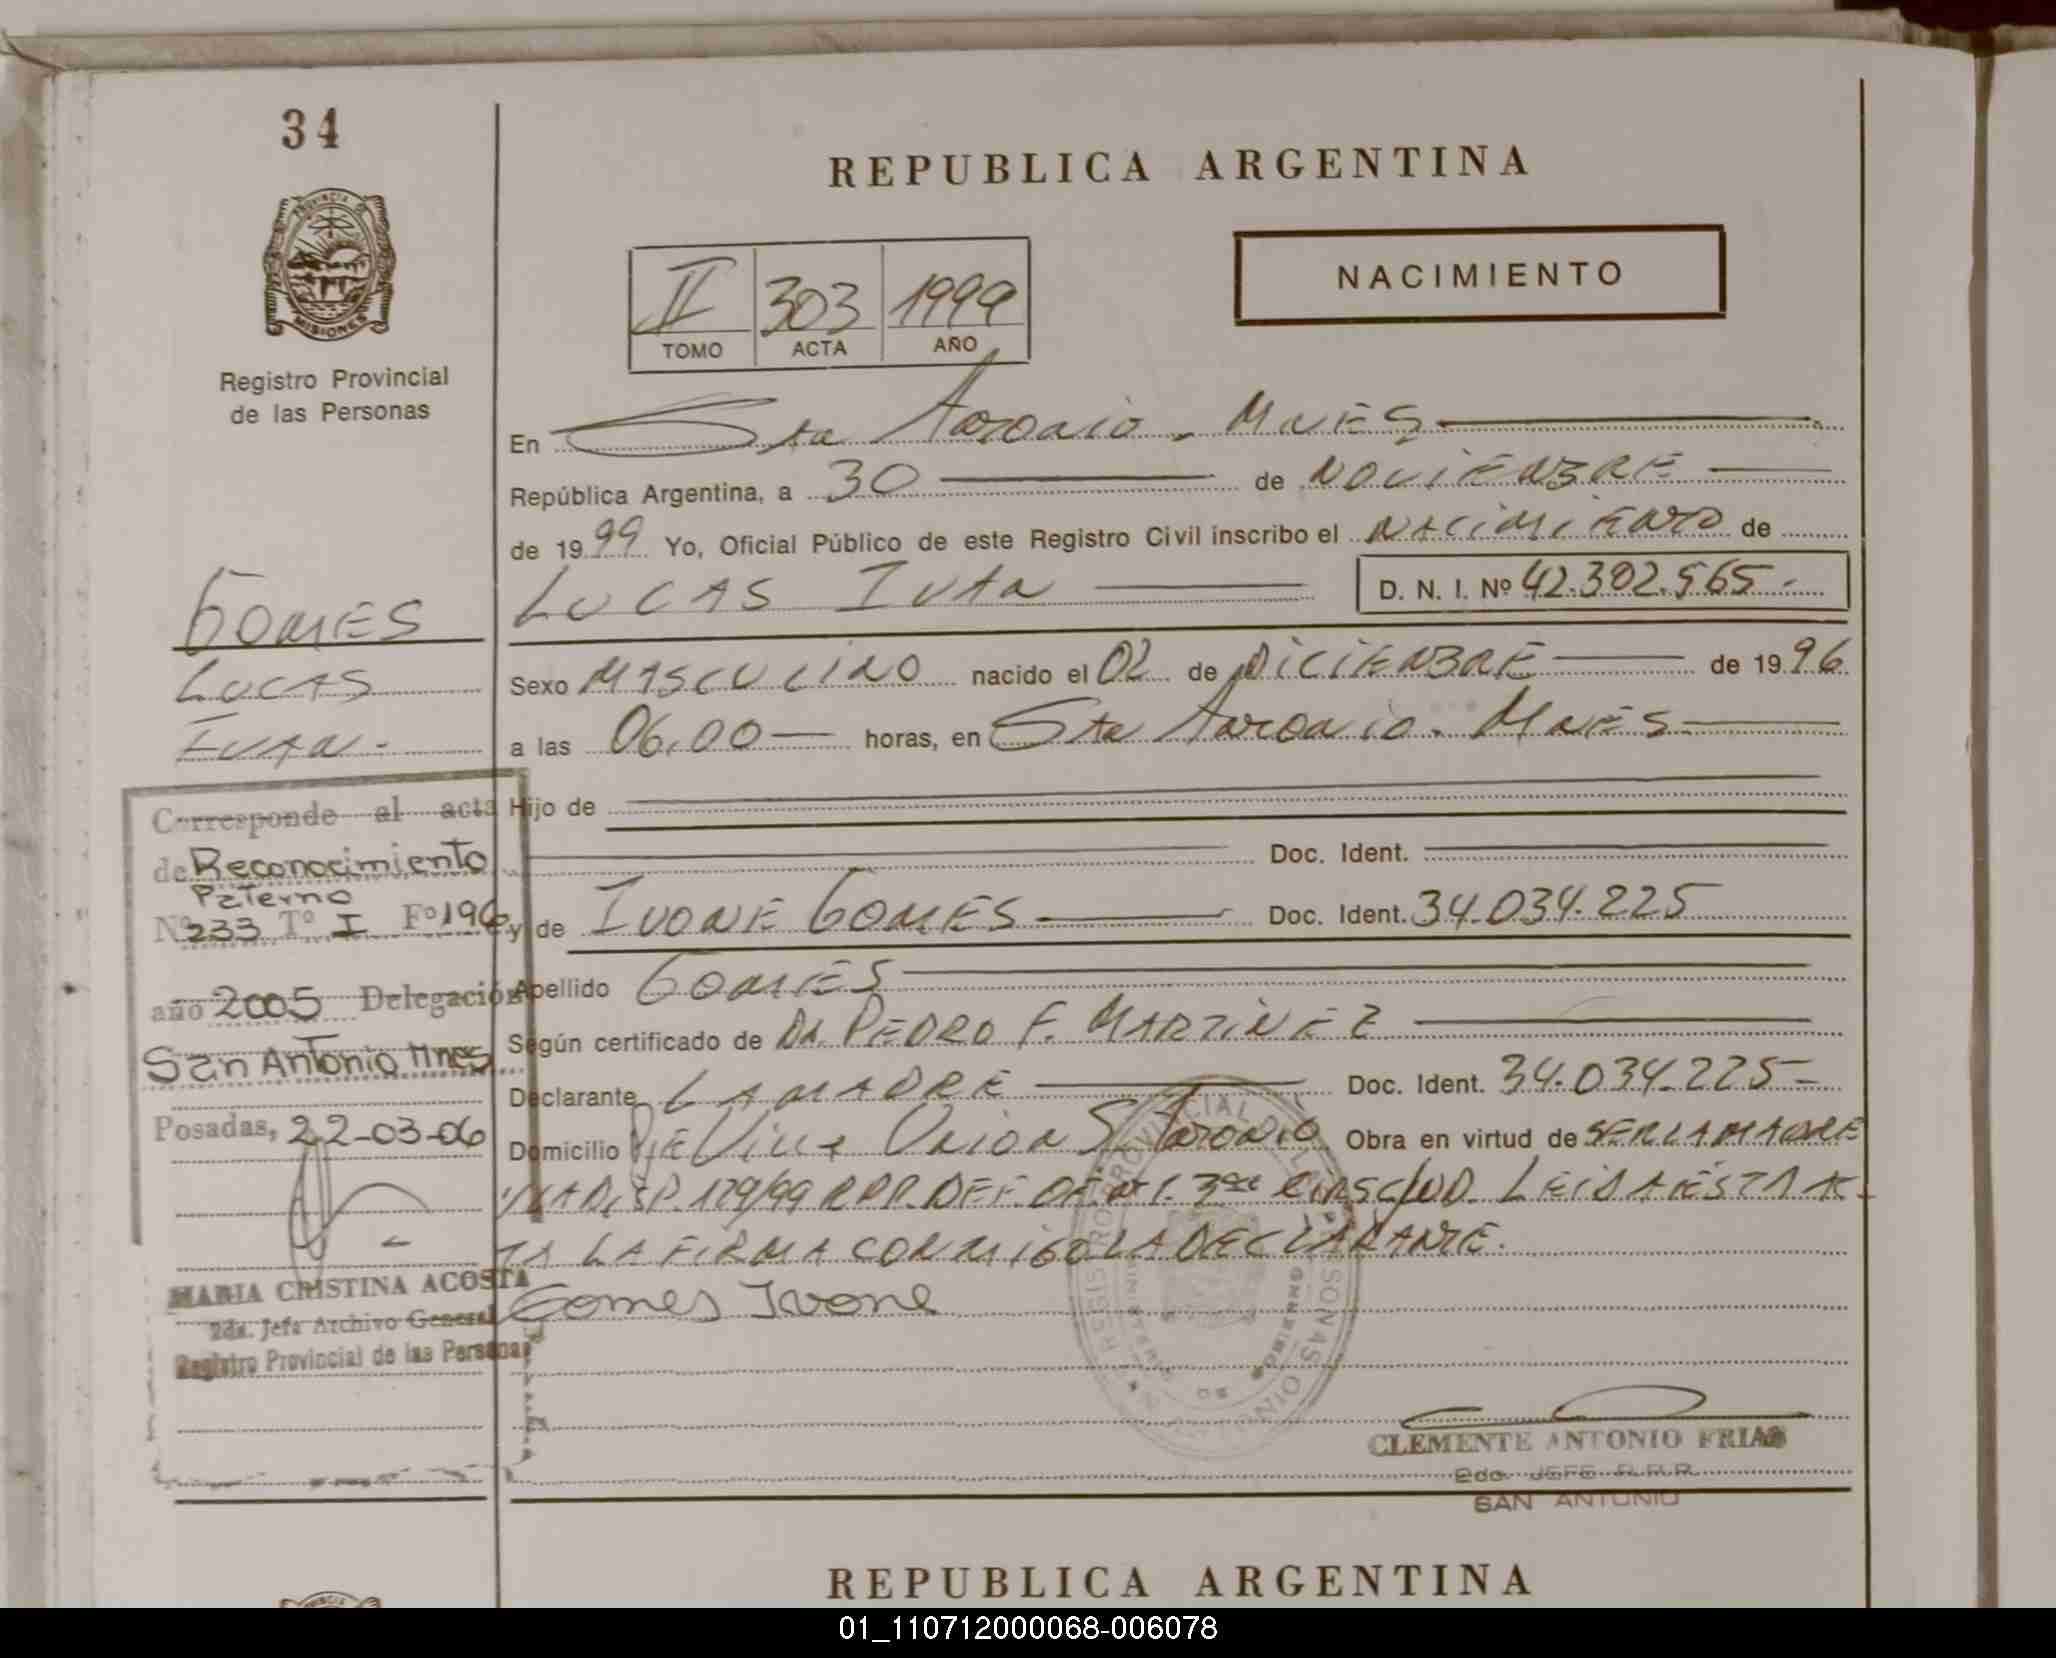 34
REPUBLICA ARGENTINA
PROVINCIA DE
MISIONES
Registro Provincial
de las Personas
II 303 1999
TOMO ACTA AÑO
NACIMIENTO
En Sta Antonio - Mnes
República Argentina, a 30 de NOVIENBRE
de 1999 Yo, Oficial Público de este Registro Civil inscribo el NACIMIENTO de
LUCAS IVAN D. N. I. Nº 42.302.565.-
GOMES
LUCAS
IVAN.-
Sexo MASCULINO nacido el 02 de DICIENBRE de 1996
a las 06,00 horas, en Sta Antonio. Mnes
Hijo de
Doc. Ident.
y de IVONE GOMES Doc. Ident. 34.034.225
Apellido GOMES
Según certificado de DR. PEDRO F. MARTINEZ
Declarante LA MADRE Doc. Ident. 34.034.225-
Domicilio Pje Villa Union S. Antonio Obra en virtud de SER LA MADRE
DISP. 129/99 RPP. DEF. OF. Nº 1. 3ra CIRSC JUD. LEIDA ESTA AC-
TA LA FIRMA CONMIGO LA DECLARANTE.
Gomes Ivone
Corresponde al acta
de Reconocimiento
Paterno
Nº 233 Tº I Fº 196
año 2005 Delegación
San Antonio Mnes
Posadas, 22-03-06
MARIA CRISTINA ACOSTA
2da. Jefa Archivo General
Registro Provincial de las Personas
CLEMENTE ANTONIO FRIAS
2do. JEFE R.P.P.
SAN ANTONIO
REPUBLICA ARGENTINA
01_110712000068-006078